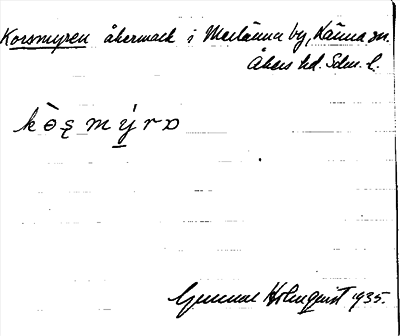 Korsmyren åkermark i Mellänna by, Länna sn.
Åkers hd. Sdm. l.
kòşmýrɒ
Gunnar Holmquist 1935.